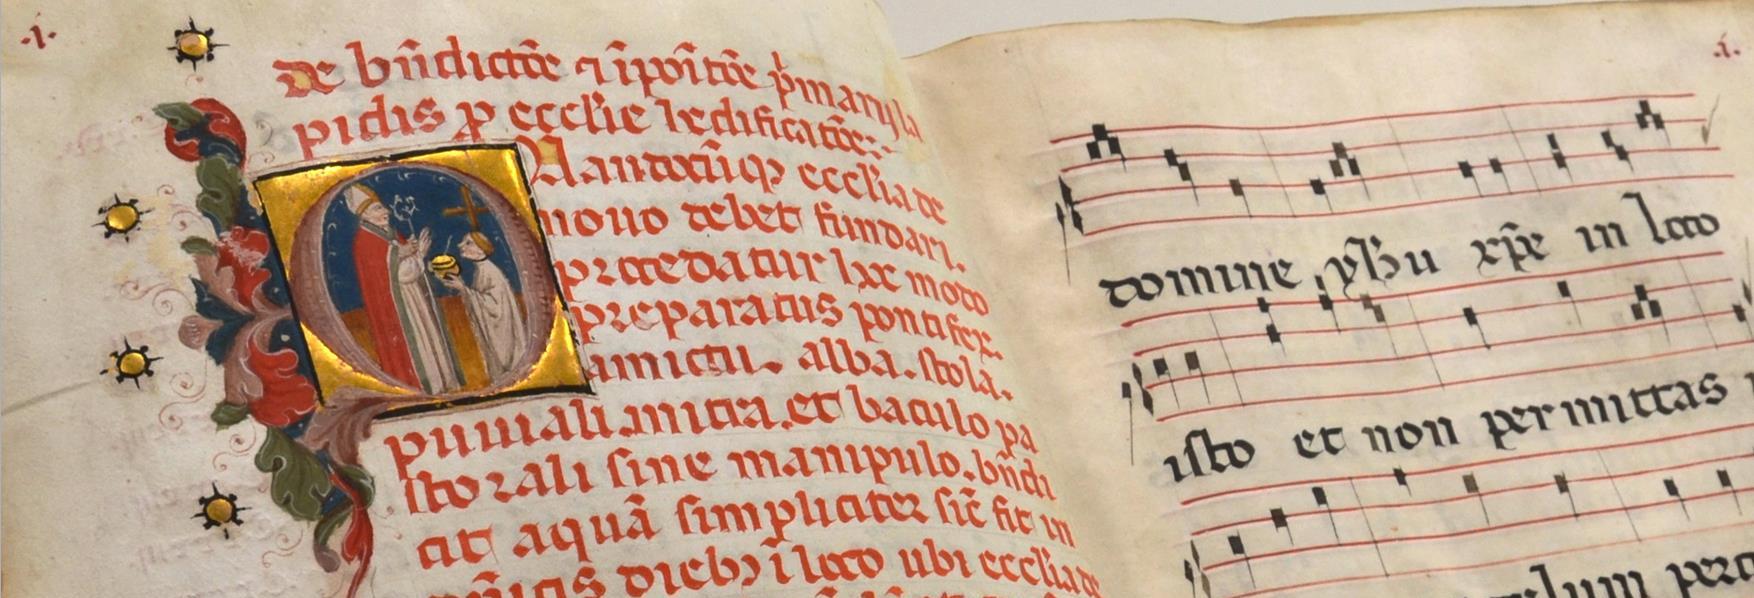 .i.
De bn̄dictōe ⁊ īpoītōe p̄mārij la
pidis p̱ eccl̄ie ledificatōe:
Quandocūq̣ꝫ eccl̄ia de
nouo debet fundari.
procedatur hoc modo
preparatus pontifex.
amictu. alba. stola.
pluuiali. mitra. et baculo pa
storali sine manipulo. bn̄di
cit aquā simpliciter sic̄ fit in
dieb; ī loco ubi eccl̄ia
.i.
domine yh̄u xp̄e in loco
isto et non permittas